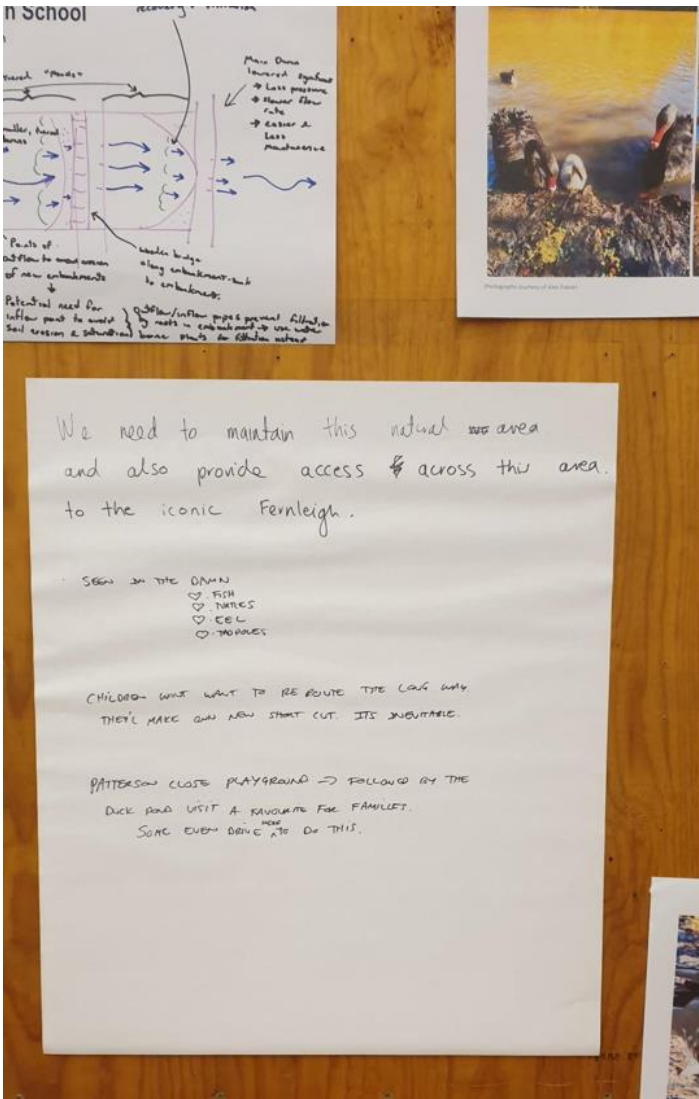 n School
recovery &
"Ponds"
Main Dam
lowered significant
→ Less pressure
→ slower flow
rate
→ easier &
Less
maintenance
Points of
outflow to avoid erosion
of new embankments
wooden bridge
along embankment
to embankment.
Potential need for
inflow point to avoid
soil erosion & saturation
Outflow/inflow pipes prevent filtration
by roots in embankment → use water
borne plants for filtration instead
Photographs courtesy of
We need to maintain this natural area
and also provide access across this area.
to the iconic Fernleigh.
SEEN IN THE DAMN
♡. FISH
♡. TURTLES
♡. EEL
♡. TADPOLES
CHILDREN WONT WANT TO RE ROUTE THE LONG WAY.
THEY'L MAKE OWN NEW SHORT CUT. ITS INEVITABLE.
PATTERSON CLOSE PLAYGROUND → FOLLOWED BY THE
DUCK POND VISIT A FAVOURITE FOR FAMILIES.
SOME EVEN DRIVE HERE TO DO THIS.